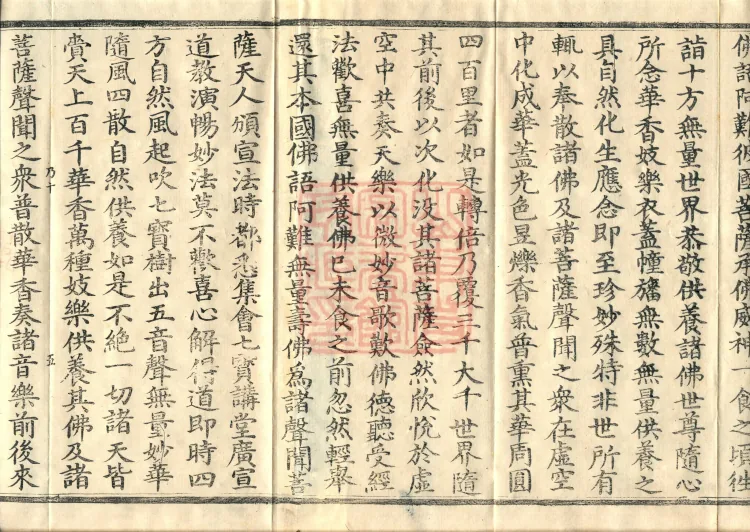 佛語阿難彼國菩薩承佛威神一食之頃徃
詣十方無量世界恭敬供養諸佛世尊隨心
所念華香妓樂衣蓋幢旛無數無量供養之
具自然化生應念即至珍妙殊特非世所有
輒以奉散諸佛及諸菩薩聲聞之衆在虛空
中化成華蓋光色昱爍香氣普熏其華周圓
四百里者如是轉倍乃覆三千大千世界隨
其前後以次化没其諸菩薩僉然欣恱於虛
空中共奏天樂以微妙音歌歎佛德聽受經
法歡喜無量供養佛已未食之前忽然輕舉
還其本國佛語阿難無量壽佛爲諸聲聞菩
薩天人頒宣法時都悉集會七寳講堂廣宣
道教演暢妙法莫不歡喜心解得道即時四
方自然風起吹七寳樹出五音聲無量妙華
隨風四散自然供養如是不絶一切諸天皆
賷天上百千華香萬種妓樂供養其佛及諸
乃十
五
菩薩聲聞之衆普散華香奏諸音樂前後來